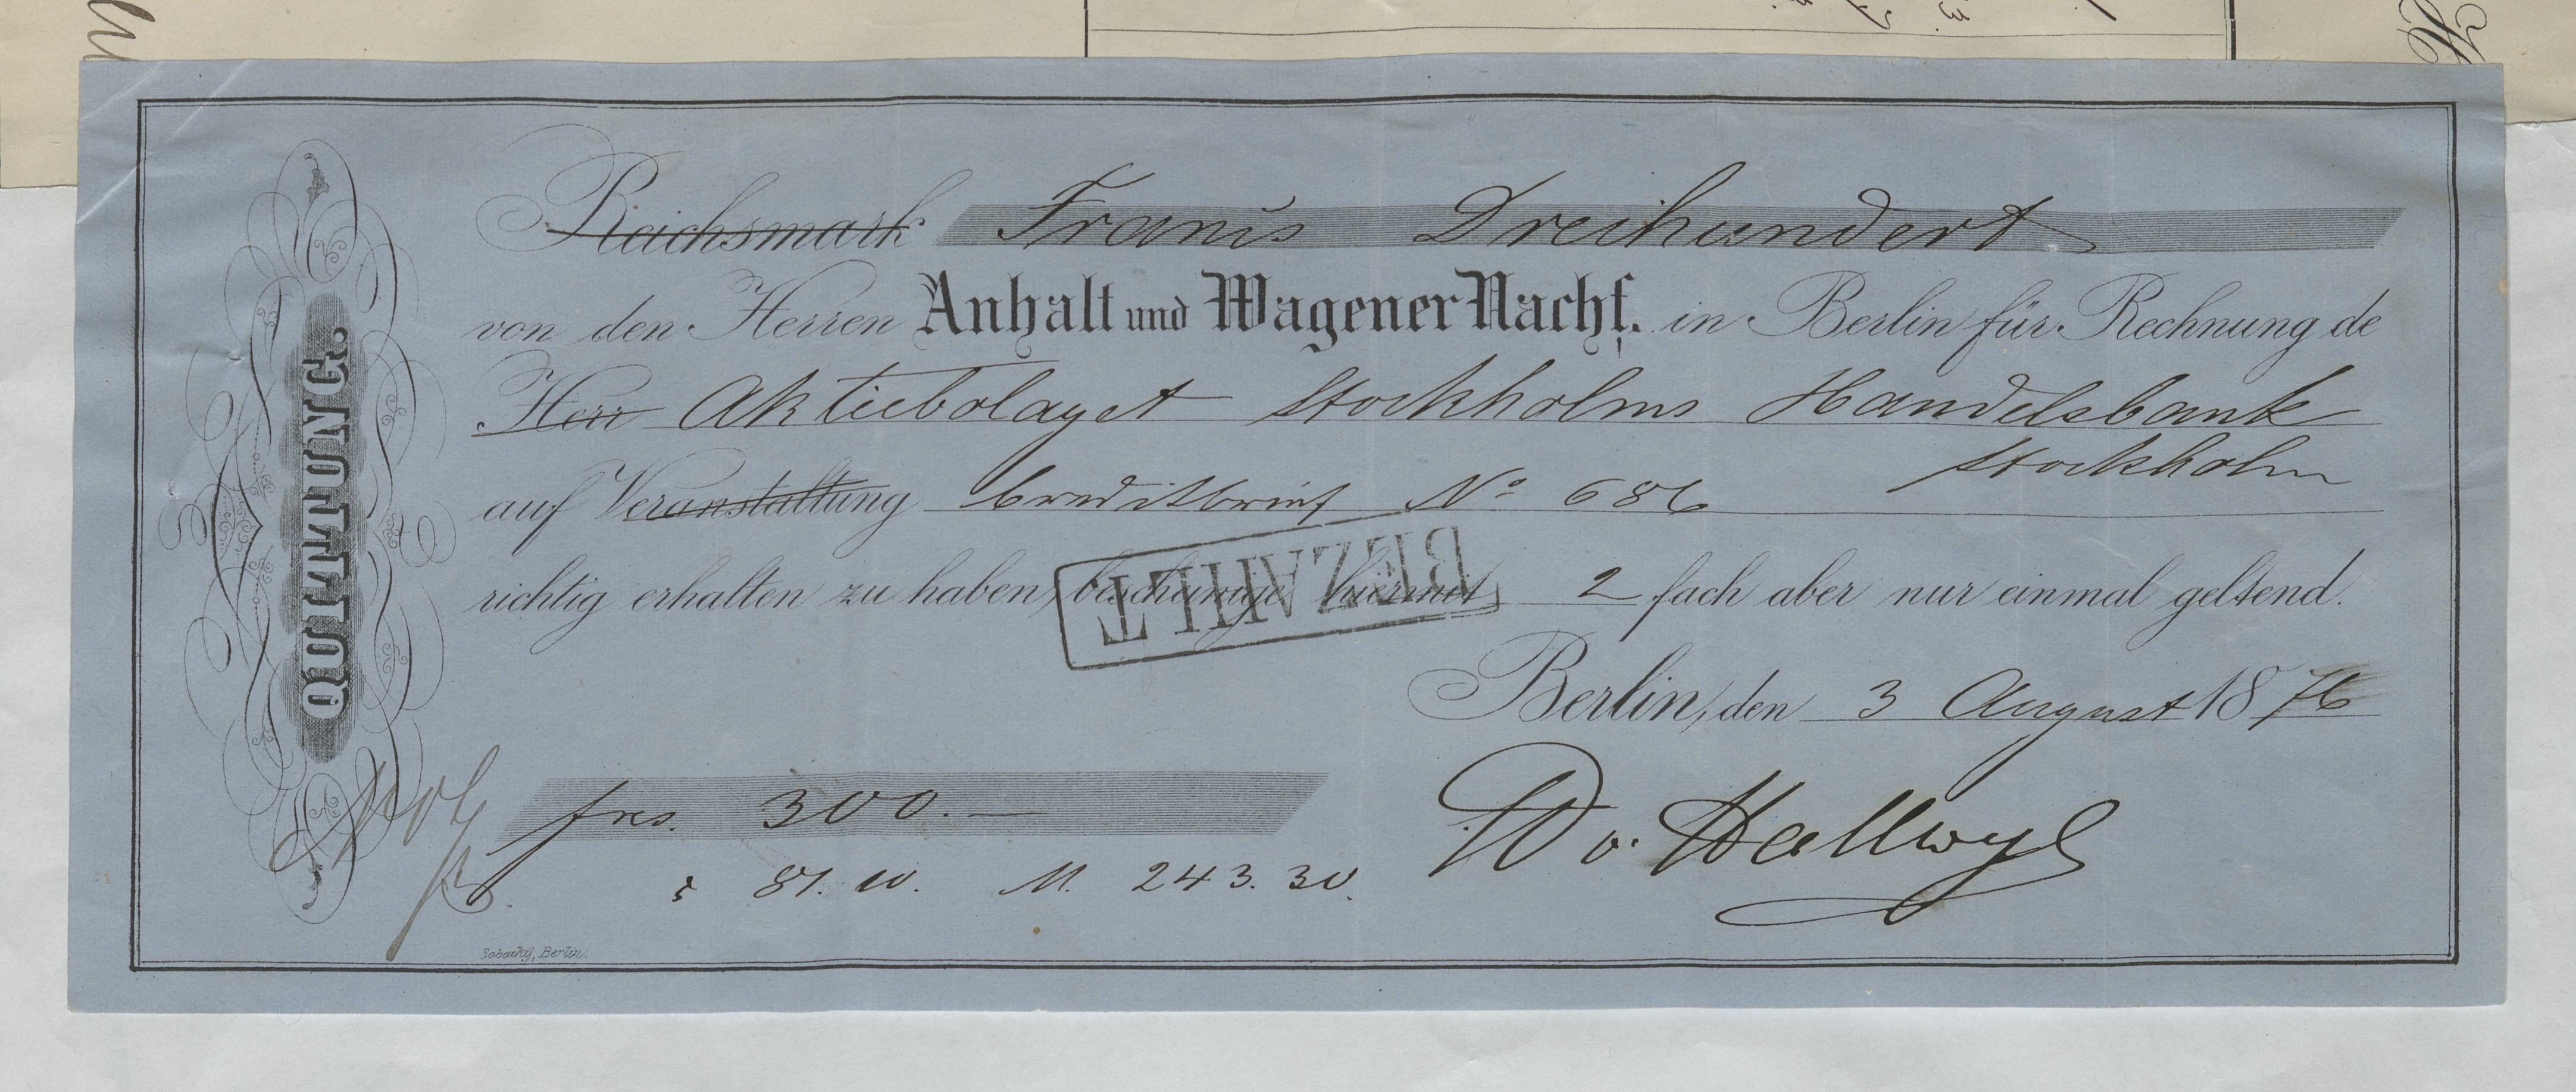 QUITTUNG.
Reichsmark Francs Dreihundert
von den Herren Anhalt und Wagener Nachf. in Berlin für Rechnung de
Herr Aktiebolaget Stockholms Handelsbank
Stockholm
auf Veranstaltung Creditbrief No 686
richtig erhalten zu haben, bescheinige hiermit 2 fach aber nur einmal geltend.
BEZAHLT
Berlin, den 3 August 1876
frcs. 300.—
W v. Hallwyl
81. 10. M. 243.30.